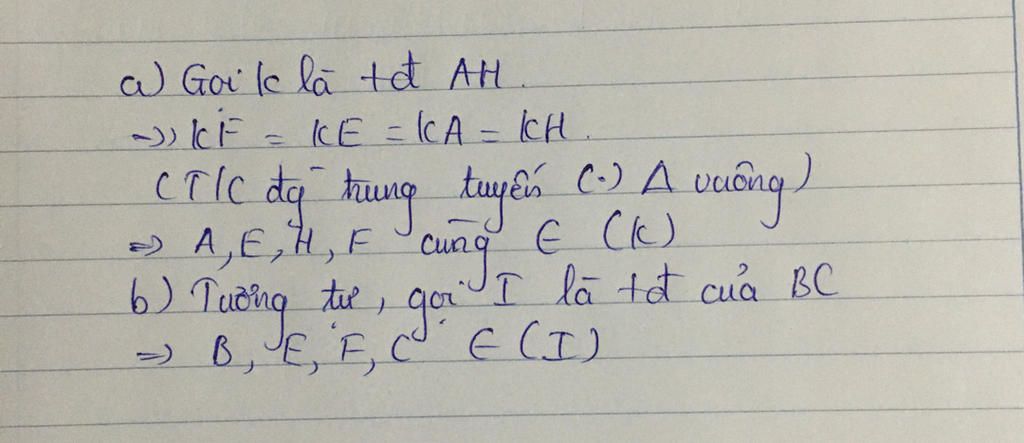 a) Gọi K là tđ AH.
=>> KF = KE = KA = KH.
(T/C đg trung tuyến (.) Δ vuông)
=> A, E, H, F cùng ∈ (K)
b) Tương tự, gọi I là tđ của BC
=> B, E, F, C ∈ (I)